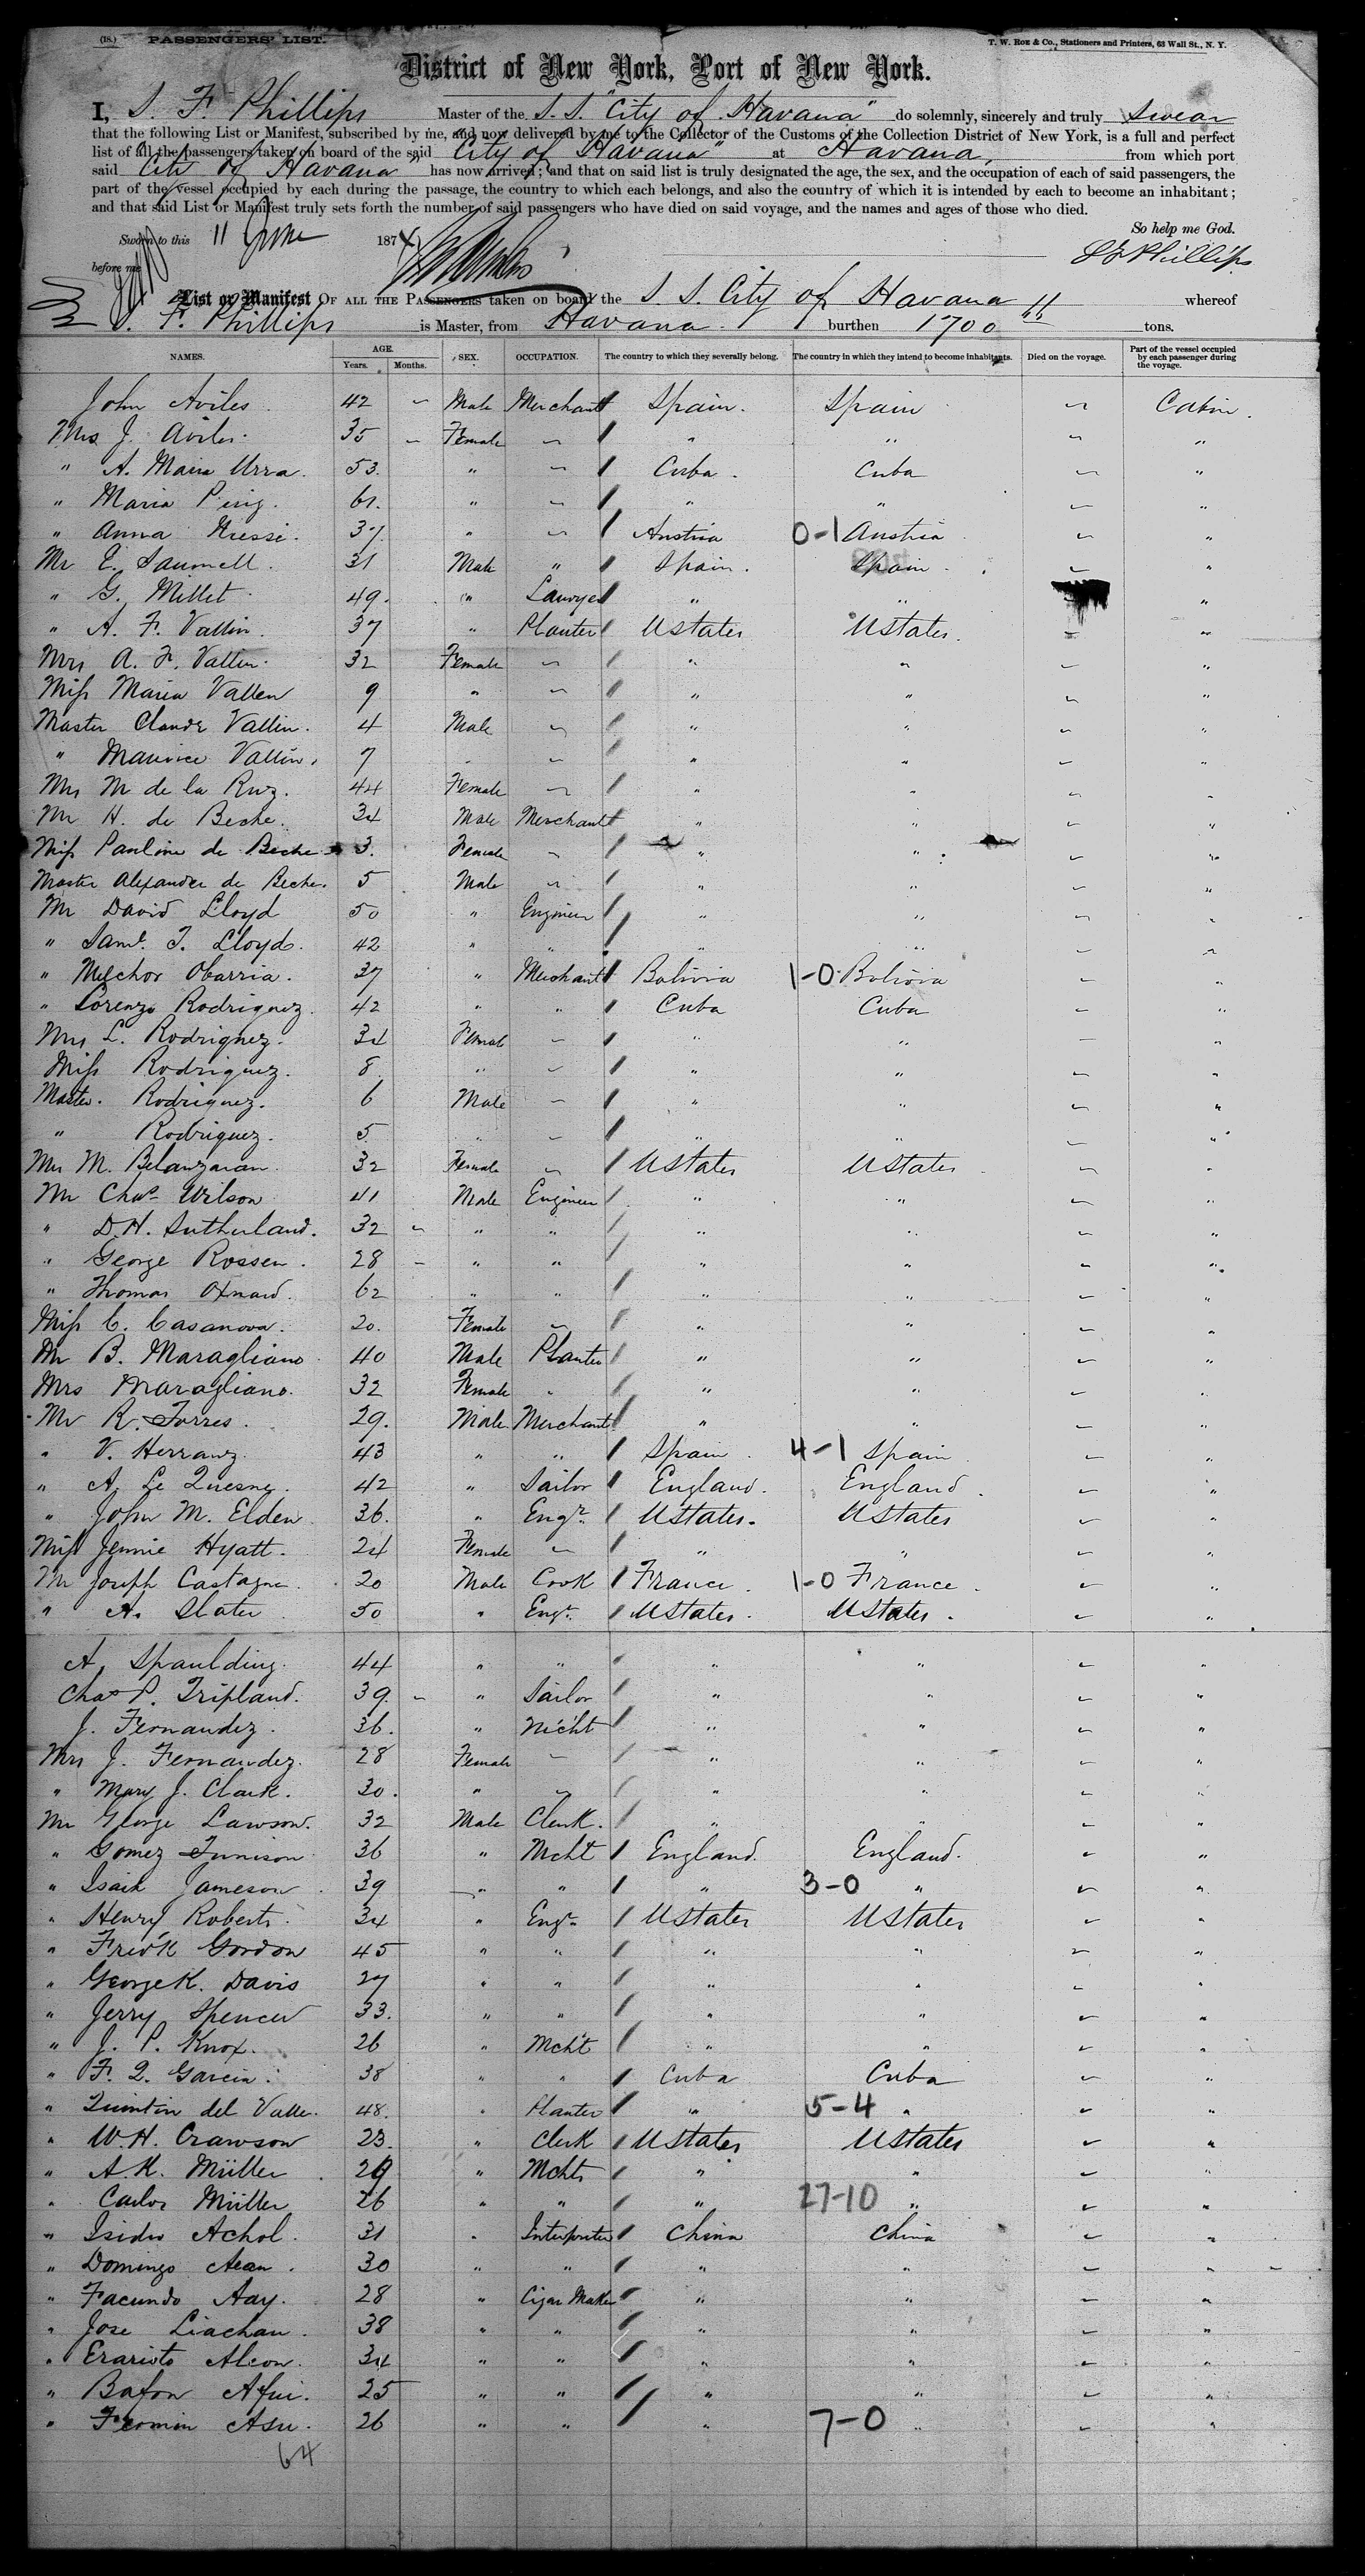 (18.) PASSENGERS' LIST. T. W. ROE & Co., Stationers and Printers, 63 Wall St., N. Y.
District of New York, Port of New York.
I, S. F. Phillips Master of the S. S. "City of Havana" do solemnly, sincerely and truly swear
that the following List or Manifest, subscribed by me, and now delivered by me to the Collector of the Customs of the Collection District of New York, is a full and perfect
list of all the passengers taken on board of the said "City of Havana" at Havana, from which port
said City of Havana has now arrived; and that on said list is truly designated the age, the sex, and the occupation of each of said passengers, the
part of the vessel occupied by each during the passage, the country to which each belongs, and also the country of which it is intended by each to become an inhabitant;
and that said List or Manifest truly sets forth the number of said passengers who have died on said voyage, and the names and ages of those who died.
So help me God.
Sworn to this 11 June 1874
before me S F Phillips
List or Manifest OF ALL THE PASSENGERS taken on board the S. S. City of Havana whereof
S. F. Phillips is Master, from Havana. burthen 1700 tons.
NAMES. AGE. Years. Months. SEX. OCCUPATION. The country to which they severally belong. The country in which they intend to become inhabitants. Died on the voyage. Part of the vessel occupied by each passenger during the voyage.
John Aviles. 42 - Male Merchant / Spain. Spain - Cabin.
Mrs J. Aviles. 35 - Female - / " " - "
" A. Maria Urra. 53. " - / Cuba. Cuba - "
" Maria 61. " - / " " - "
" Anna 37. " - / Austria 0-1 Austria - "
Mr E. Saumell. 31 Male " / Spain. Spain. - "
" G. Millet 49. " Lawyer / " " - "
" A. F. Vallin. 37 " Planter / UStates UStates. - "
Mrs A. F. Vallin. 32 Female - / " " - "
Miss Maria Vallen 9 " - / " " - "
Master Claude Vallin. 4 Male - / " " - "
" Maurice Vallin. 7 " - / " " - "
Mrs M de la Ruz. 44 Female - / " " - "
Mr H. de Beche. 34 Male Merchant / " " - "
Miss Pauline de Beche 3. Female - / " " - "
Master Alexander de Beche. 5 Male - / " " - "
Mr David Lloyd 50 " Engineer / " " - "
" Saml. T. Lloyd. 42 " " / " " - "
" Melchor Obarria. 37 " Merchant / Bolivia 1-0 Bolivia - "
" Lorenzo Rodriguez. 42 " " / Cuba Cuba - "
Mrs L. Rodriguez. 34 Female - / " " - "
Miss Rodriguez. 8. " - / " " - "
Master. Rodriguez. 6 Male - / " " - "
" Rodriguez. 5 " - / " " - "
Mrs M. Belanzaran. 32 Female - / UStates UStates - "
Mr Chas Wilson 41 Male Engineer / " " - "
" D. H. Sutherland. 32 - " " / " " - "
" George Rossen. 28 - " " / " " - "
" Thomas Oxnard. 62 " " / " " - "
Miss C. Casanova. 20. Female - / " " - "
Mr B. Maragliano 40 Male Planter / " " - "
Mrs Maragliano. 32 Female " / " " - "
Mr R. Torres. 29. Male Merchant / " " - "
" V. Herranz. 43 " " / Spain 4-1 Spain - "
" A. Le Quesne. 42 " Sailor / England. England. - "
" John M. Elden 36. " Engr. / UStates. UStates - "
Miss Jennie Hyatt. 24 Female - / " " - "
Mr Joseph Castagne. 20 Male Cook / France. 1-0 France. - "
" A. Slater 50 " Engr. / UStates. UStates. - "
A. Spaulding. 44 " " / " " - "
Chas P. Tripland. 39. - " Sailor / " " - "
J. Fernandez. 36. " Mcht / " " - "
Mrs J. Fernandez. 28 Female - / " " - "
" Mary J. Clark. 30. " - / " " - "
Mr George Lawson. 32 Male Clerk. / " " - "
" Gomez Tunison 36 " Mcht / England. England. - "
" Isaih Jameson. 39 " " / " 3-0 " - "
" Henry Roberts. 34 " Engr. / UStates UStates - "
" Fredk Gordon 45 " " / " " - "
" George K. Davis 27 " " / " " - "
" Jerry Spencer 33. " " / " " - "
" J. P. Knox. 26 " Mcht / " " - "
" F. Q. Garcia. 38 " " / Cuba Cuba - "
" Quintin del Valle. 48. " Planter / " 5-4 " - "
" W. H. Crawson 23. " Clerk / UStates UStates - "
" A. K. Müller. 29 " Mchts / " " - "
" Carlos Müller 26 " " / " 27-10 " - "
" Isidro Achol. 31 " Interpreter / China China - "
" Domingo Aean. 30 " " / " " - "
" Facundo Aay. 28 " Cigar Maker / " " - "
" Jose Liachan. 38 " " / " " - "
" Eraristo Alcon. 34 " " / " " - "
" Bafon Afui. 25 " " / " " - "
" Fermin Asu. 26 " " / " 7-0 " - "
64